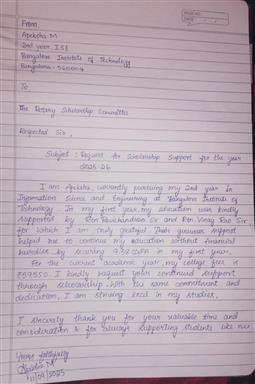 PAGE NO:
DATE:
From,
Apeksha M
2nd year, ISE
Bangalore Institute of Technology
Bangalore - 560004
To
The Rotary Scholarship Committee
Respected Sir,
Subject : Request for Scholarship Support for the year
2025-26
I am Apeksha, currently pursuing my 2nd year in
Information Science and Engineering at Bangalore Institute of
Technology. In my first year, my education was kindly
supported by Rtn Ravichandran Sir and Rtn Vinay Rao Sir
for which I am truly grateful. Their generous support
helped me to continue my education without financial
burden by securing 9.52 CGPA in my first year.
For the current academic year, my college fee is
I kindly request your continued support
through scholarship. With the same commitment and
dedication, I am striving excel in my studies.
I sincerely thank you for your valuable time and
consideration & for always supporting students like me.
Yours faithfully
Apeksha M
11/09/2025